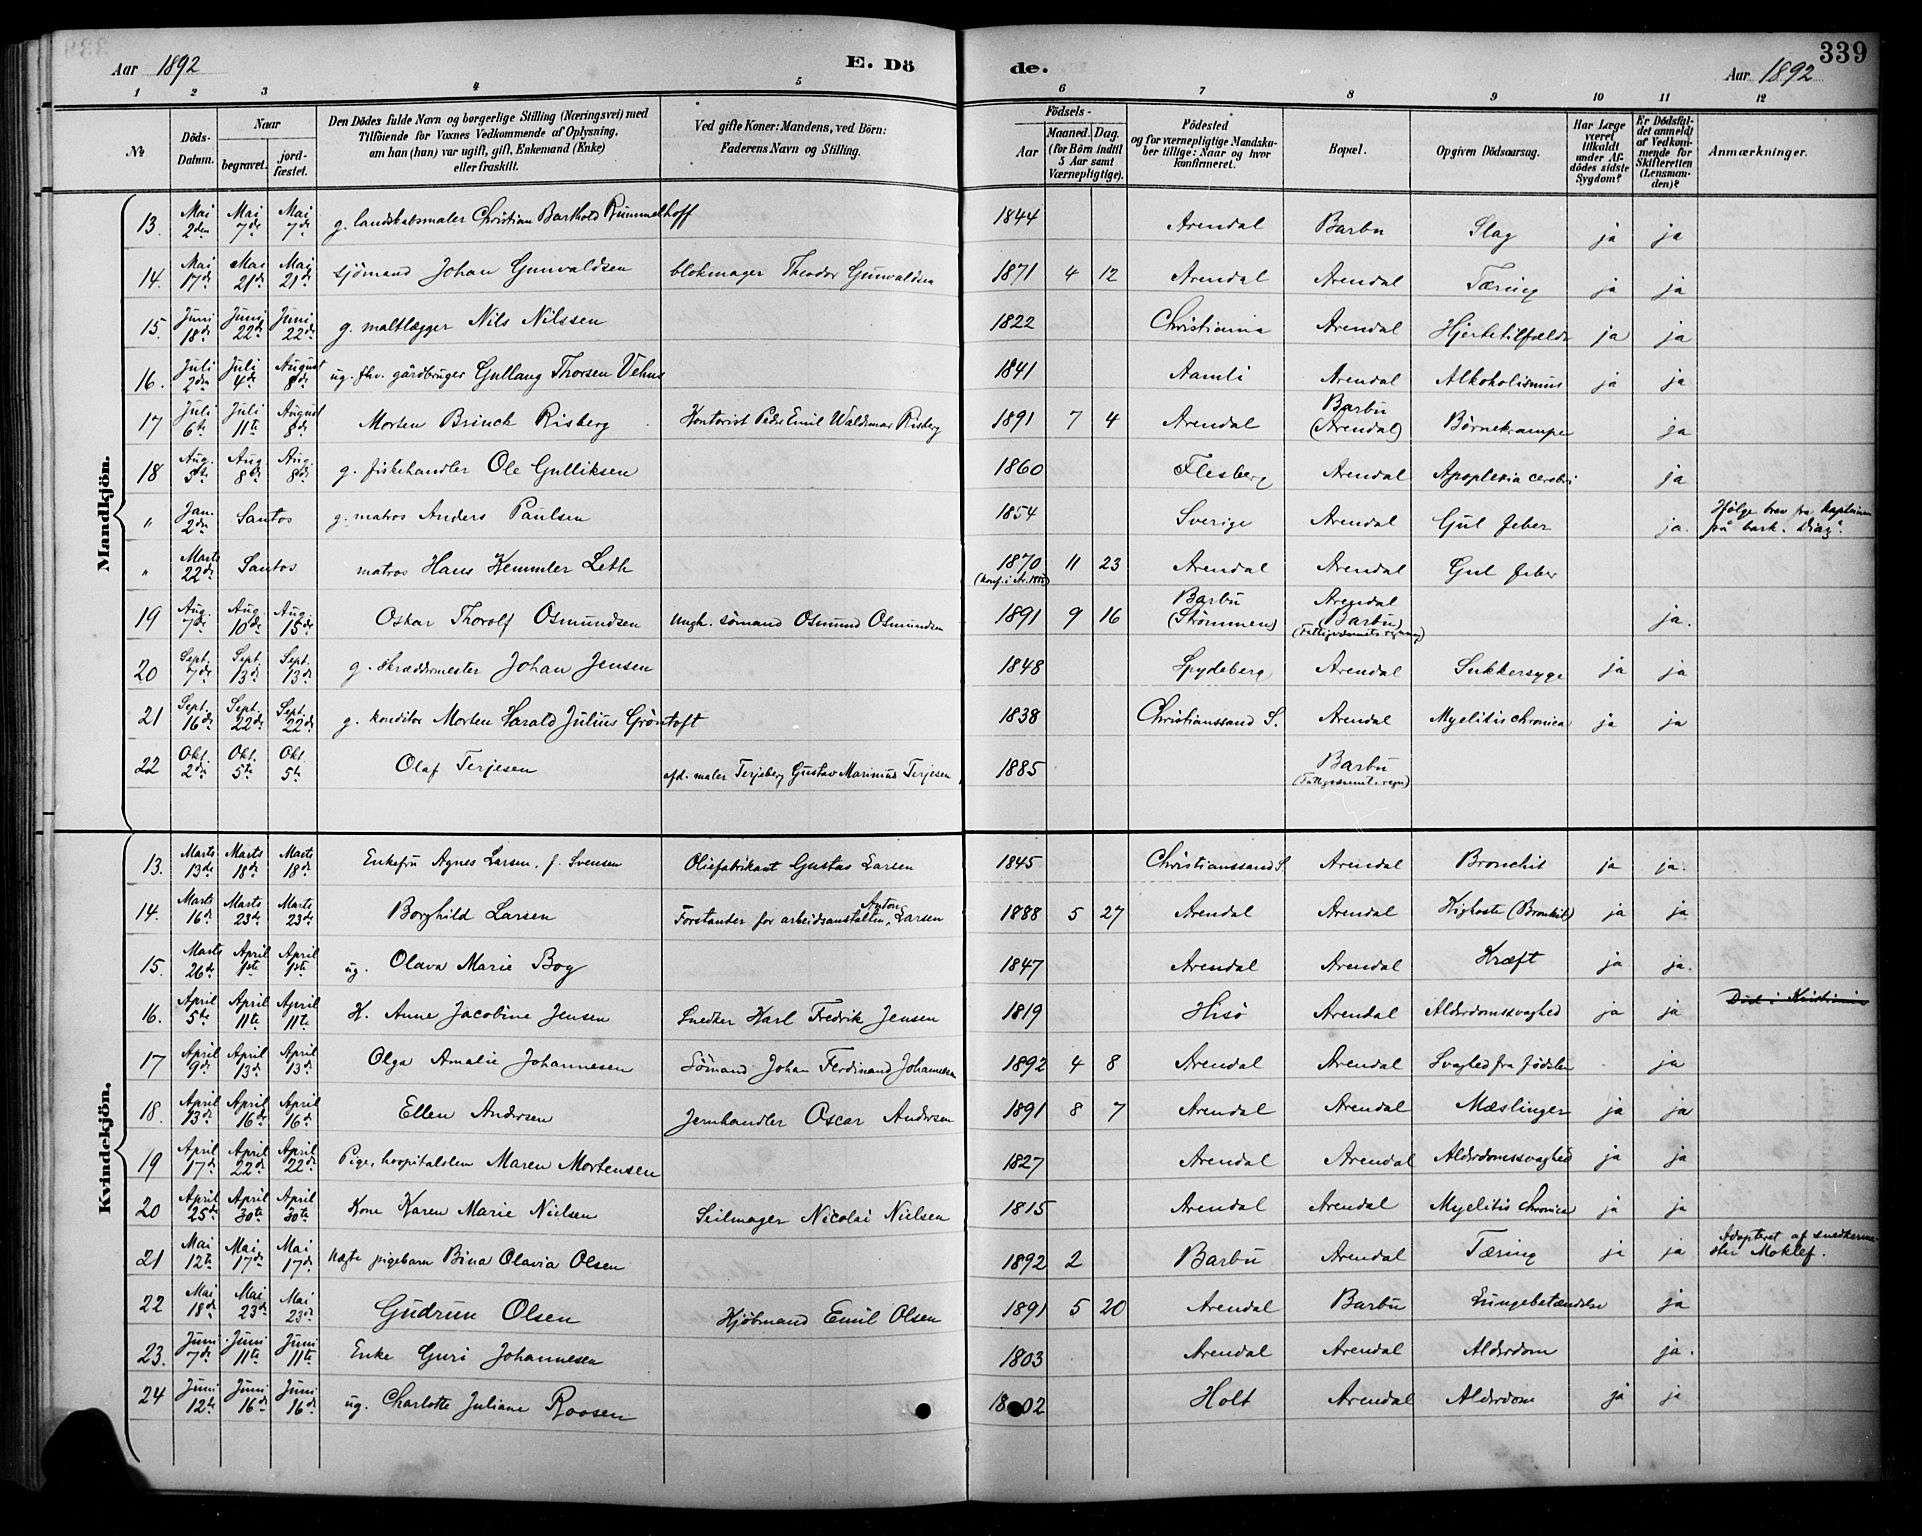 Aar 1892
E. Dö
de.
Aar 1892
339
1 2 3 4 5 6 7 8 9 10 11 12
№
Döds-Datum.
Naar
begravet.
jord-fæstet.
Den Dödes fulde Navn og borgerlige Stilling (Næringsvei) med
Tilföiende for Voxnes Vedkommende af Oplysning,
om han (hun) var ugift, gift, Enkemand (Enke)
eller fraskilt.
Ved gifte Koner: Mandens, ved Börn:
Faderens Navn og Stilling.
Födsels-
Aar
Maaned. Dag.
(for Börn indtil
5 Aar samt
Værnepligtige).
Födested
og for værnepligtige Mandska-
ber tillige: Naar og hvor
konfirmeret.
Bopæl.
Opgiven Dödsaarsag.
Har Læge
været
tilkaldt
under Af-
dödes sidste
Sygdom?
Er Dödsfal-
det anmeldt
af Vedkom-
mende for
Skifteretten
(Lensman-
den)?
Anmærkninger.
Mandkjön.
13. Mai 2den Mai 7de Mai 7de g. landskabsmaler Christian Barthold Rummelhoff 1844 Arendal Barbu Slag ja ja
14. Mai 17de Mai 21de Mai 21de sjömand Johan Gunvaldsen blokmager Theodor Gunvaldsen 1871 4 12 Arendal Arendal Tæring ja ja
15. Juni 18de Juni 22de Juni 22de g. maltlægger Nils Nilssen 1822 Christiania Arendal Hjertetilfælde ja ja
16. Juli 2den Juli 4de August 8de ug. fhv. gårdbruger Gullang Thorsen Vehus 1841 Aamli Arendal Alkoholismus ja ja
17 Juli 6te Juli 11te August 8de Morten Brinch Risberg Kontorist Peder Emil Waldemar Risberg 1891 7 4 Arendal Barbu (Arendal) Börnekrampe ja
18 Aug. 5te Aug. 8de Aug. 8de g. fiskehandler Ole Gulliksen 1860 Flesberg Arendal Apoplexia cerebri ja
" Jan. 2den Santos g. matros Anders Paulsen 1854 Sverige Arendal Gul feber ja. Ifølge brev fra kapteinen på bark. "Diaz".
" Marts 22de Santos matros Hans Kemmler Leth 1870 11 23 Arendal Arendal Gul feber
19 Aug. 7de Aug. 10de Aug. 15de Oskar Thorolf Osmundsen Ungk. sömand Osmund Osmundsen 1891 9 16 Barbu (Strömmen) Arendal Barbu) ja.
20 Sept. 7de Sept. 13de Sept. 13de g. skræddermester Johan Jensen 1848 Spydeberg Arendal Sukkersyge ja ja
21 Sept. 16de Sept. 22de Sept. 22de g. konditor Morten Harald Julius Gröntoft 1838 Christianssand S. Arendal Myelitis chronica ja ja
22 Okt. 2den Okt. 5te Okt. 5te Olaf Terjesen afd. maler Terjeberg Gustav Marinius Terjesen 1885 Barbu
Kvindekjön.
13. Marts 13de Marts 18de Marts 18de Enkefru Agnes Larsen, f. Svensen Oliefabrikant Gustav Larsen 1845 Christianssand S. Arendal Bronchit ja ja.
14. Marts 16de Marts 23de Marts 23de Borghild Larsen Forstander for arbeidsanstalten, Anton Larsen 1888 5 27 Arendal Arendal Kighoste (Bronkit) ja ja
15. Marts 26de April 1ste April 1ste ug. Olava Marie Bog 1847 Arendal Arendal Kræft ja ja.
16. April 5te April 11te April 11te K. Anne Jacobine Jensen Snedker Karl Fredrik Jensen 1819 Hisö Arendal Alderdomssvaghed ja ja Död i Kristiania
17 April 9de April 13de April 13de Olga Amalie Johannesen Sömand Johan Ferdinand Johannesen 1892 4 8 Arendal Arendal Svaghed fra Födslen ja
18. April 13de April 16de April 16de Ellen Andersen Jernhandler Oscar Andersen 1891 8 7 Arendal Arendal Mæslinger ja ja
19 April 17de April 22de April 22de Pige, hospitalslem Maren Mortensen 1827 Arendal Arendal Alderdomssvaghed ja ja
20 April 25de April 30te April 30te Kone Karen Marie Nielsen Seilmager Nicolai Nielsen 1815 Arendal Arendal Myelitis Chronica ja ja
21 Mai 12te Mai 17de Mai 17de Uægte pigebarn Bina Olavia Olsen 1892 2 Barbu Arendal Tæring ja ja Adopteret af snedkerme-
ster Moklef.
22 Mai 18de Mai 23de Mai 23de Gudrun Olsen Kjöbmand Emil Olsen 1891 5 20 Arendal Barbu Lungebetændelse ja
23. Juni 7de Juni 11te Juni 11te Enke Guri Johannesen 1803 Arendal Arendal Alderdom ja.
24 Juni 12te Juni 16de Juni 16de ug. Charlotte Juliane Roosen 1802 Holt Arendal Alderdom ja ja